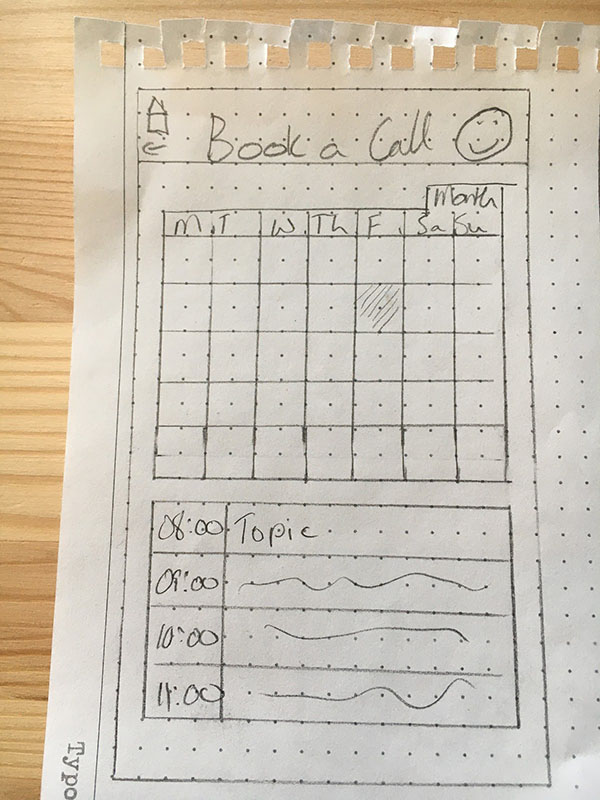 Book a Call
Month
M T W Th F Sa Su
08:00 Topic
09:00
10:00
11:00
Typo